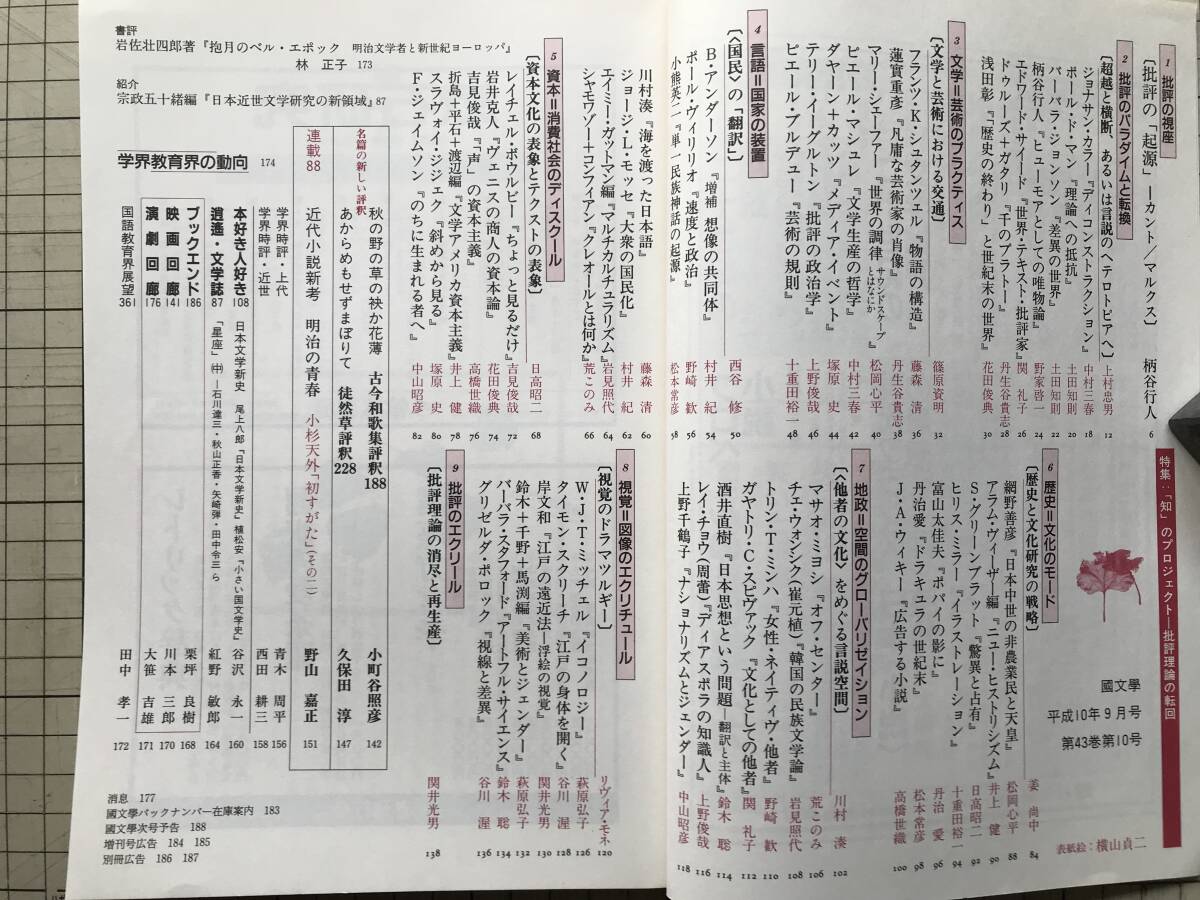 特集:「知」のプロジェクト―批評理論の転回
國文學
平成10年9月号
第43巻第10号
表紙絵:横山貞二
1 批評の視座
〔批評の「起源」―カント/マルクス〕 柄谷行人 6
2 批評のパラダイムと転換
〔超越と横断、あるいは言説のヘテロトピアへ〕 上村忠男 12
ジョナサン・カラー『ディコンストラクション』 中村三春 18
ポール・ド・マン『理論への抵抗』 土田知則 20
バーバラ・ジョンソン『差異の世界』 土田知則 22
柄谷行人『ヒューモアとしての唯物論』 野家啓一 24
エドワード・サイード『世界・テキスト・批評家』 関 礼子 26
ドゥルーズ+ガタリ『千のプラトー』 丹生谷貴志 28
浅田彰『「歴史の終わり」と世紀末の世界』 花田俊典 30
3 文学=芸術のプラクティス
〔文学と芸術における交通〕 篠原資明 32
フランツ・K・シュタンツェル『物語の構造』 藤森 清 36
蓮實重彥『凡庸な芸術家の肖像』 丹生谷貴志 38
マリー・シェーファー『世界の調律 サウンドスケープとはなにか』 松岡心平 40
ピエール・マシュレ『文学生産の哲学』 中村三春 42
ダヤーン+カッツ『メディア・イベント』 塚原 史 44
テリー・イーグルトン『批評の政治学』 上野俊哉 46
ピエール・ブルデュー『芸術の規則』 十重田裕一 48
4 言語=国家の装置
〔〈国民〉の「翻訳」〕 西谷 修 50
B・アンダーソン『増補 想像の共同体』 村井 紀 54
ポール・ヴィリリオ『速度と政治』 野崎 歓 56
小熊英二『単一民族神話の起源』 松本常彦 58
川村湊『海を渡った日本語』 藤森 清 60
ジョージ・L・モッセ『大衆の国民化』 村井 紀 62
エイミー・ガットマン編『マルチカルチュラリズム』 岩見照代 64
シャモワゾー+コンフィアン『クレオールとは何か』 荒このみ 66
5 資本=消費社会のディスクール
〔資本文化の表象とテクストの表象〕 日高昭二 68
レイチェル・ボウルビー『ちょっと見るだけ』 吉見俊哉 72
岩井克人『ヴェニスの商人の資本論』 花田俊典 74
吉見俊哉『「声」の資本主義』 高橋世織 76
折島+平石+渡辺編『文学アメリカ資本主義』 井上 健 78
スラヴォイ・ジジェク『斜めから見る』 塚原 史 80
F・ジェイムソン『のちに生まれる者へ』 中山昭彦 82
6 歴史=文化のモード
〔歴史と文化研究の戦略〕 姜 尚中 84
網野善彦『日本中世の非農業民と天皇』 松岡心平 88
アラム・ヴィーザー編『ニュー・ヒストリシズム』 井上 健 90
S・グリーンブラット『驚異と占有』 日高昭二 92
ヒリス・ミラー『イラストレーション』 十重田裕一 94
富山太佳夫『ポパイの影に』 松本常彦 96
丹治愛『ドラキュラの世紀末』 丹治 愛 98
J・A・ウィキー『広告する小説』 高橋世織 100
7 地政=空間のグローバリゼイション
〔〈他者の文化〉をめぐる言説空間〕 川村 湊 102
マサオ・ミヨシ『オフ・センター』 荒このみ 106
チェ・ウォンシク(崔元植)『韓国の民族文学論』 岩見照代 108
トリン・T・ミンハ『女性・ネイティヴ・他者』 野崎 歓 110
G・C・スピヴァック『文化としての他者』 関 礼子 112
酒井直樹『日本思想という問題―翻訳と主体』 鈴木 聡 114
レイ・チョウ(周蕾)『ディアスポラの知識人』 上野俊哉 116
上野千鶴子『ナショナリズムとジェンダー』 中山昭彦 118
8 視覚=図像のエクリチュール
〔視覚のドラマツルギー〕 リヴィア・モネ 120
W・J・T・ミッチェル『イコノロジー』 萩原弘子 126
タイモン・スクリーチ『江戸の身体を開く』 谷川 渥 128
岸文和『江戸の遠近法―浮絵の視覚』 関井光男 130
鈴木+千野+馬渕編『美術とジェンダー』 萩原弘子 132
バーバラ・スタフォード『アートフル・サイエンス』 鈴木 聡 134
グリゼルダ・ポロック『視線と差異』 谷川 渥 136
9 批評のエクリール
〔批評理論の消尽と再生産〕 関井光男 138
名篇の新しい評釈
秋の野の草の袂か花薄 古今和歌集評釈188 小町谷照彦 142
あからめもせずまぼりて 徒然草評釈228 久保田 淳 147
連載88 近代小説新考 明治の青春 小杉天外「初すがた」(その二) 野山 嘉正 151
学界時評・上代 青木 周平 156
学界時評・近世 西田 耕三 158
本好き人好き108 日本文学新史 尾上八郎「日本文学新史」植松安「小さい国文学史」 谷沢 永一 160
逍遙・文学誌87 「星座」㊥―石川達三・秋山正香・矢崎弾・田中令三ら 紅野 敏郎 164
ブックエンド186 栗坪 良樹 168
映画回廊141 川本 三郎 170
演劇回廊176 大笹 吉雄 171
国語教育界展望361 田中 孝一 172
書評
岩佐壮四郎著『抱月のベル・エポック 明治文学者と新世紀ヨーロッパ』
林 正子 173
紹介
宗政五十緒編『日本近世文学研究の新領域』87
学界教育界の動向 174
消息 177
國文學バックナンバー在庫案内 183
國文學次号予告 188
増刊号広告 184 185
別冊広告 186 187